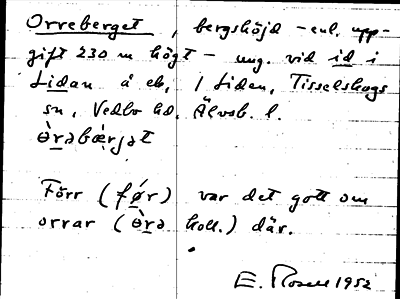 Orreberget, bergshöjd – enl. upp-
gift 230 m högt – ung. vid id i
Lidan å eb, 1 Liden, Tisselskogs
sn, Vedbo hd. Älvsb. l.
ɵ̀rəbærjət
Förr (fǿr) var det gott om
orrar (ɵ̀rə koll.) där.
E. Rosell 1952